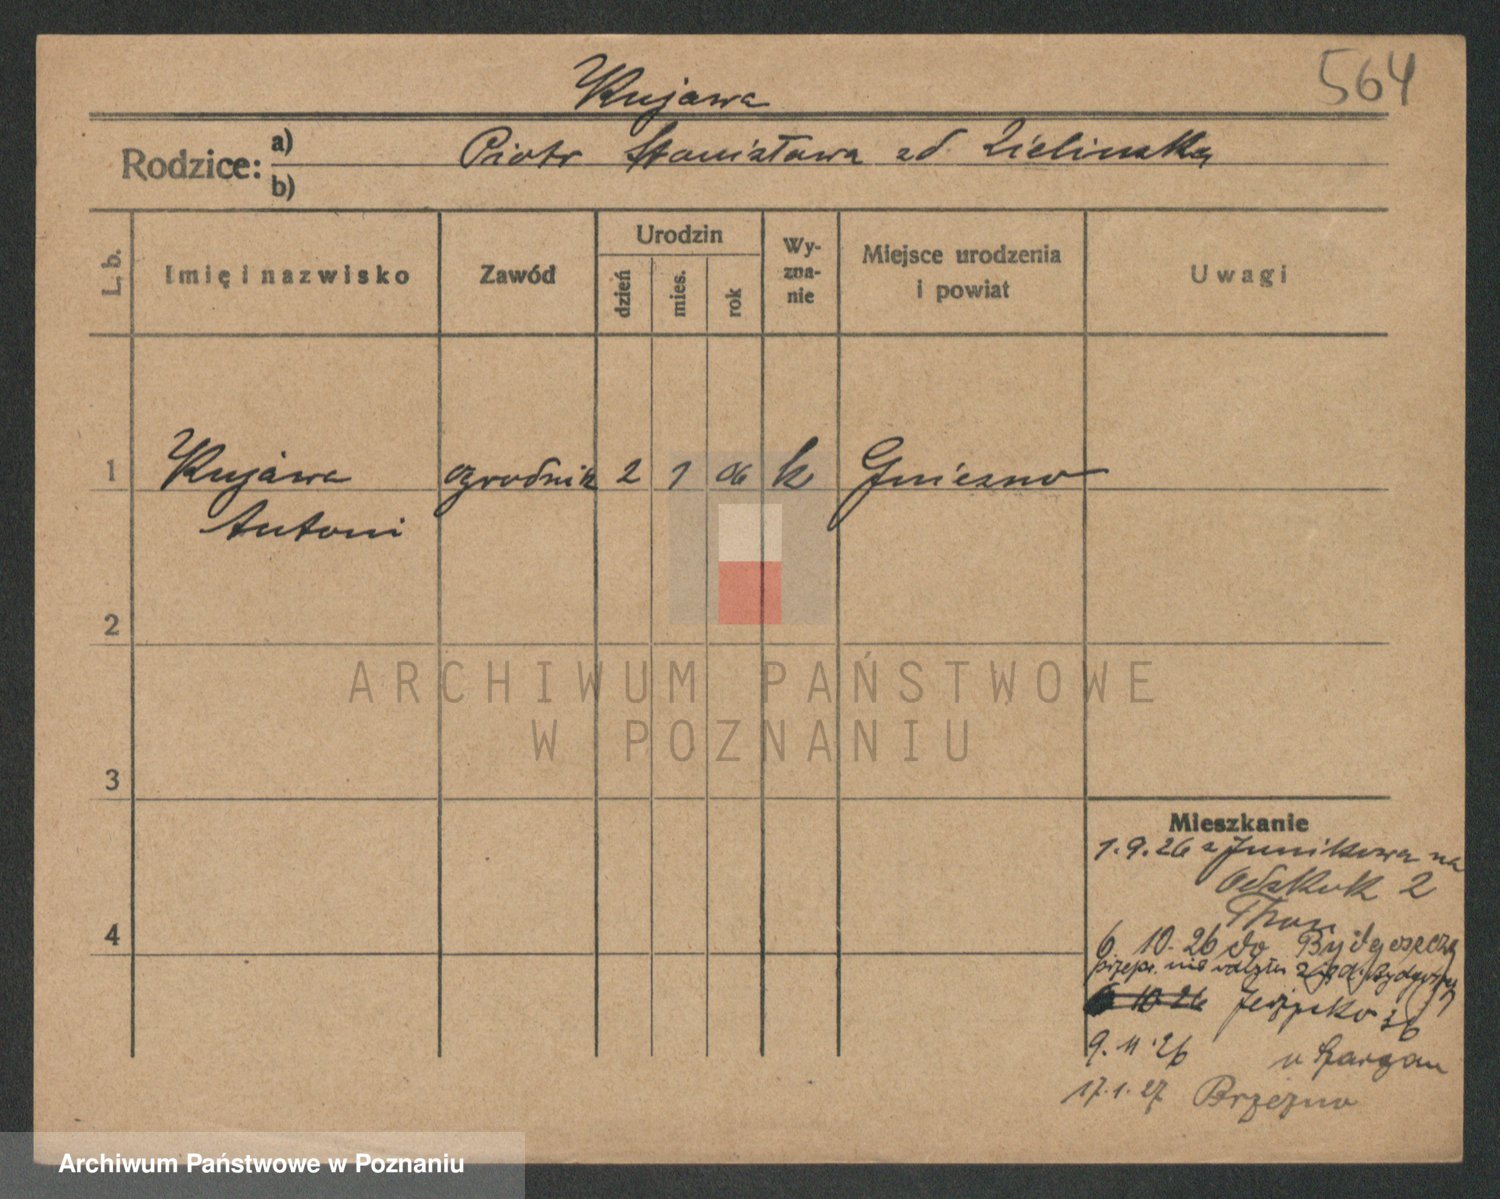 564
Kujawa
Rodzice: a) Piotr Stanisława zd. Zielinska
b)
L. b. Imię i nazwisko Zawód Urodzin dzień mies. rok Wy-zna-nie Miejsce urodzenia i powiat Uwagi
1 Kujawa ogrodnik 2 1 06 k Gniezno
Antoni
2
3
4
Mieszkanie
1.9.26 z Junikowa na
2
6. 10. 26 do Bydgoszczy
6 10 26
9. 11. 26 u
17. 1. 27 Brzezno
ARCHIWUM PAŃSTWOWE
W POZNANIU
Archiwum Państwowe w Poznaniu